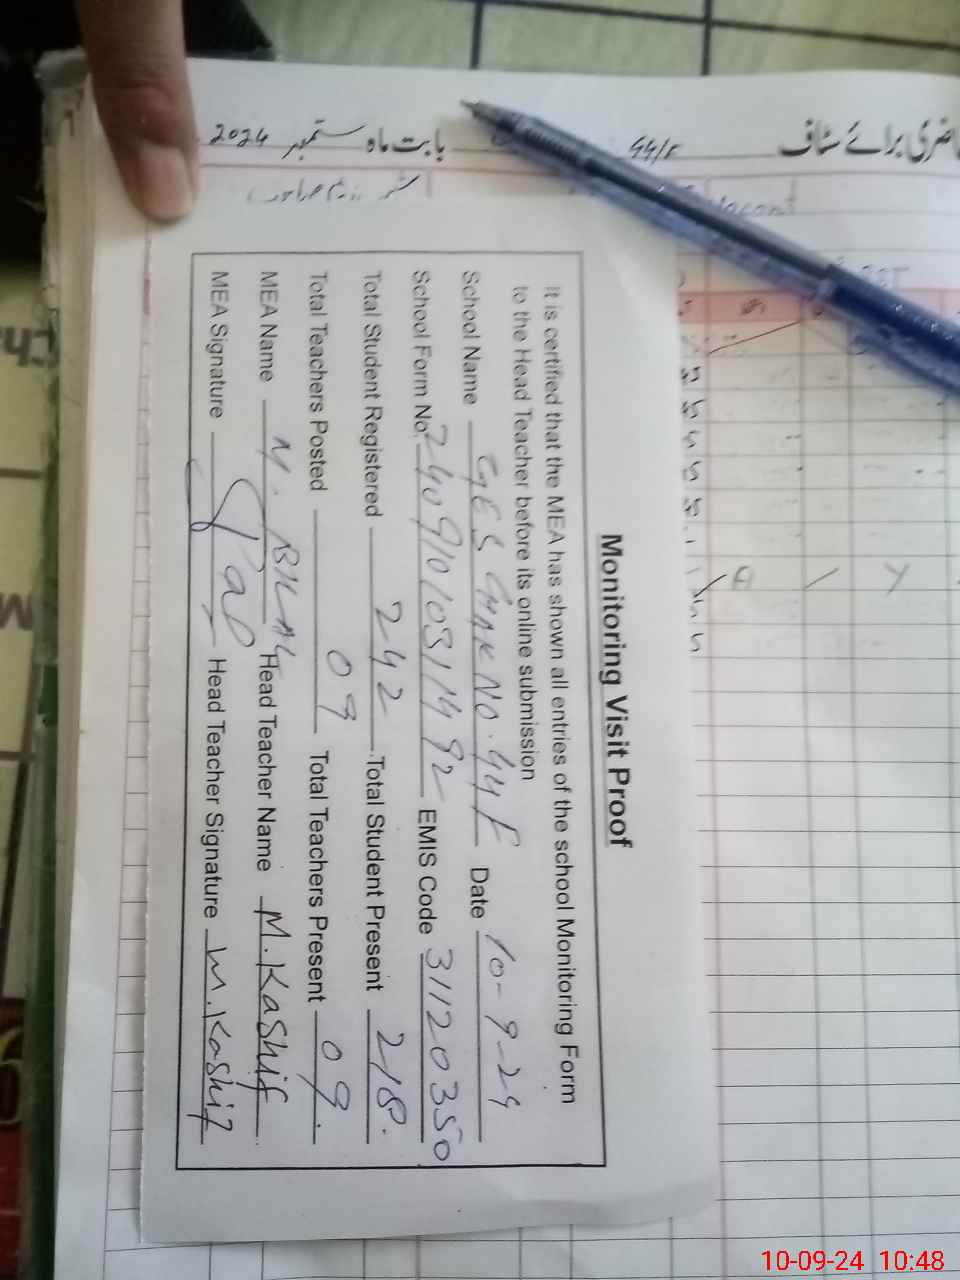 حاضری برائے سٹاف 44/F بابت ماہ ستمبر 2024
Monitoring Visit Proof
It is certified that the MEA has shown all entries of the school Monitoring Form
to the Head Teacher before its online submission
School Name GES CHAK NO. 44F Date 10-9-24
School Form No. EMIS Code 311120350
Total Student Registered 242 Total Student Present 218
Total Teachers Posted 09 Total Teachers Present 09
MEA Name M. BILAL Head Teacher Name M. Kashif
MEA Signature Head Teacher Signature M. Kashif
10-09-24 10:48